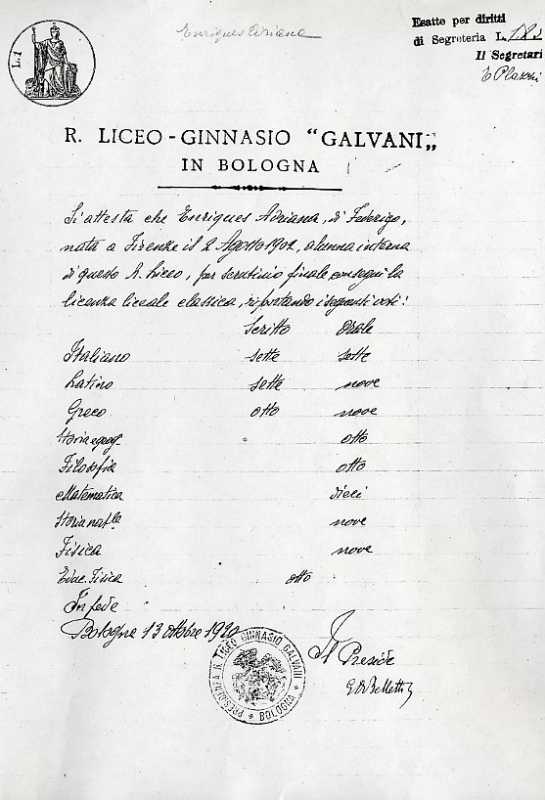 L.1
Enriques Adriana
Esatte per diritti
di Segreteria L.
Il Segretari
R. LICEO - GINNASIO "GALVANI„
IN BOLOGNA
Si attesta che Enriques Adriana, di Federigo,
nata a Firenze il 2 Agosto 1902, alunna interna
di questo R. Liceo, per scrutinio finale, conseguì la
licenza liceale classica, riportando i seguenti voti:
Scritto Orale
Italiano sette sette
Latino sette nove
Greco otto nove
Storia e geog. otto
Filosofia otto
Matematica dieci
Storia nat.le nove
Fisica nove
Educ. Fisica otto
In fede
Bologna 13 ottobre 1920
Il Preside
PRESIDENZA R. LICEO GINNASIO GALVANI * BOLOGNA *